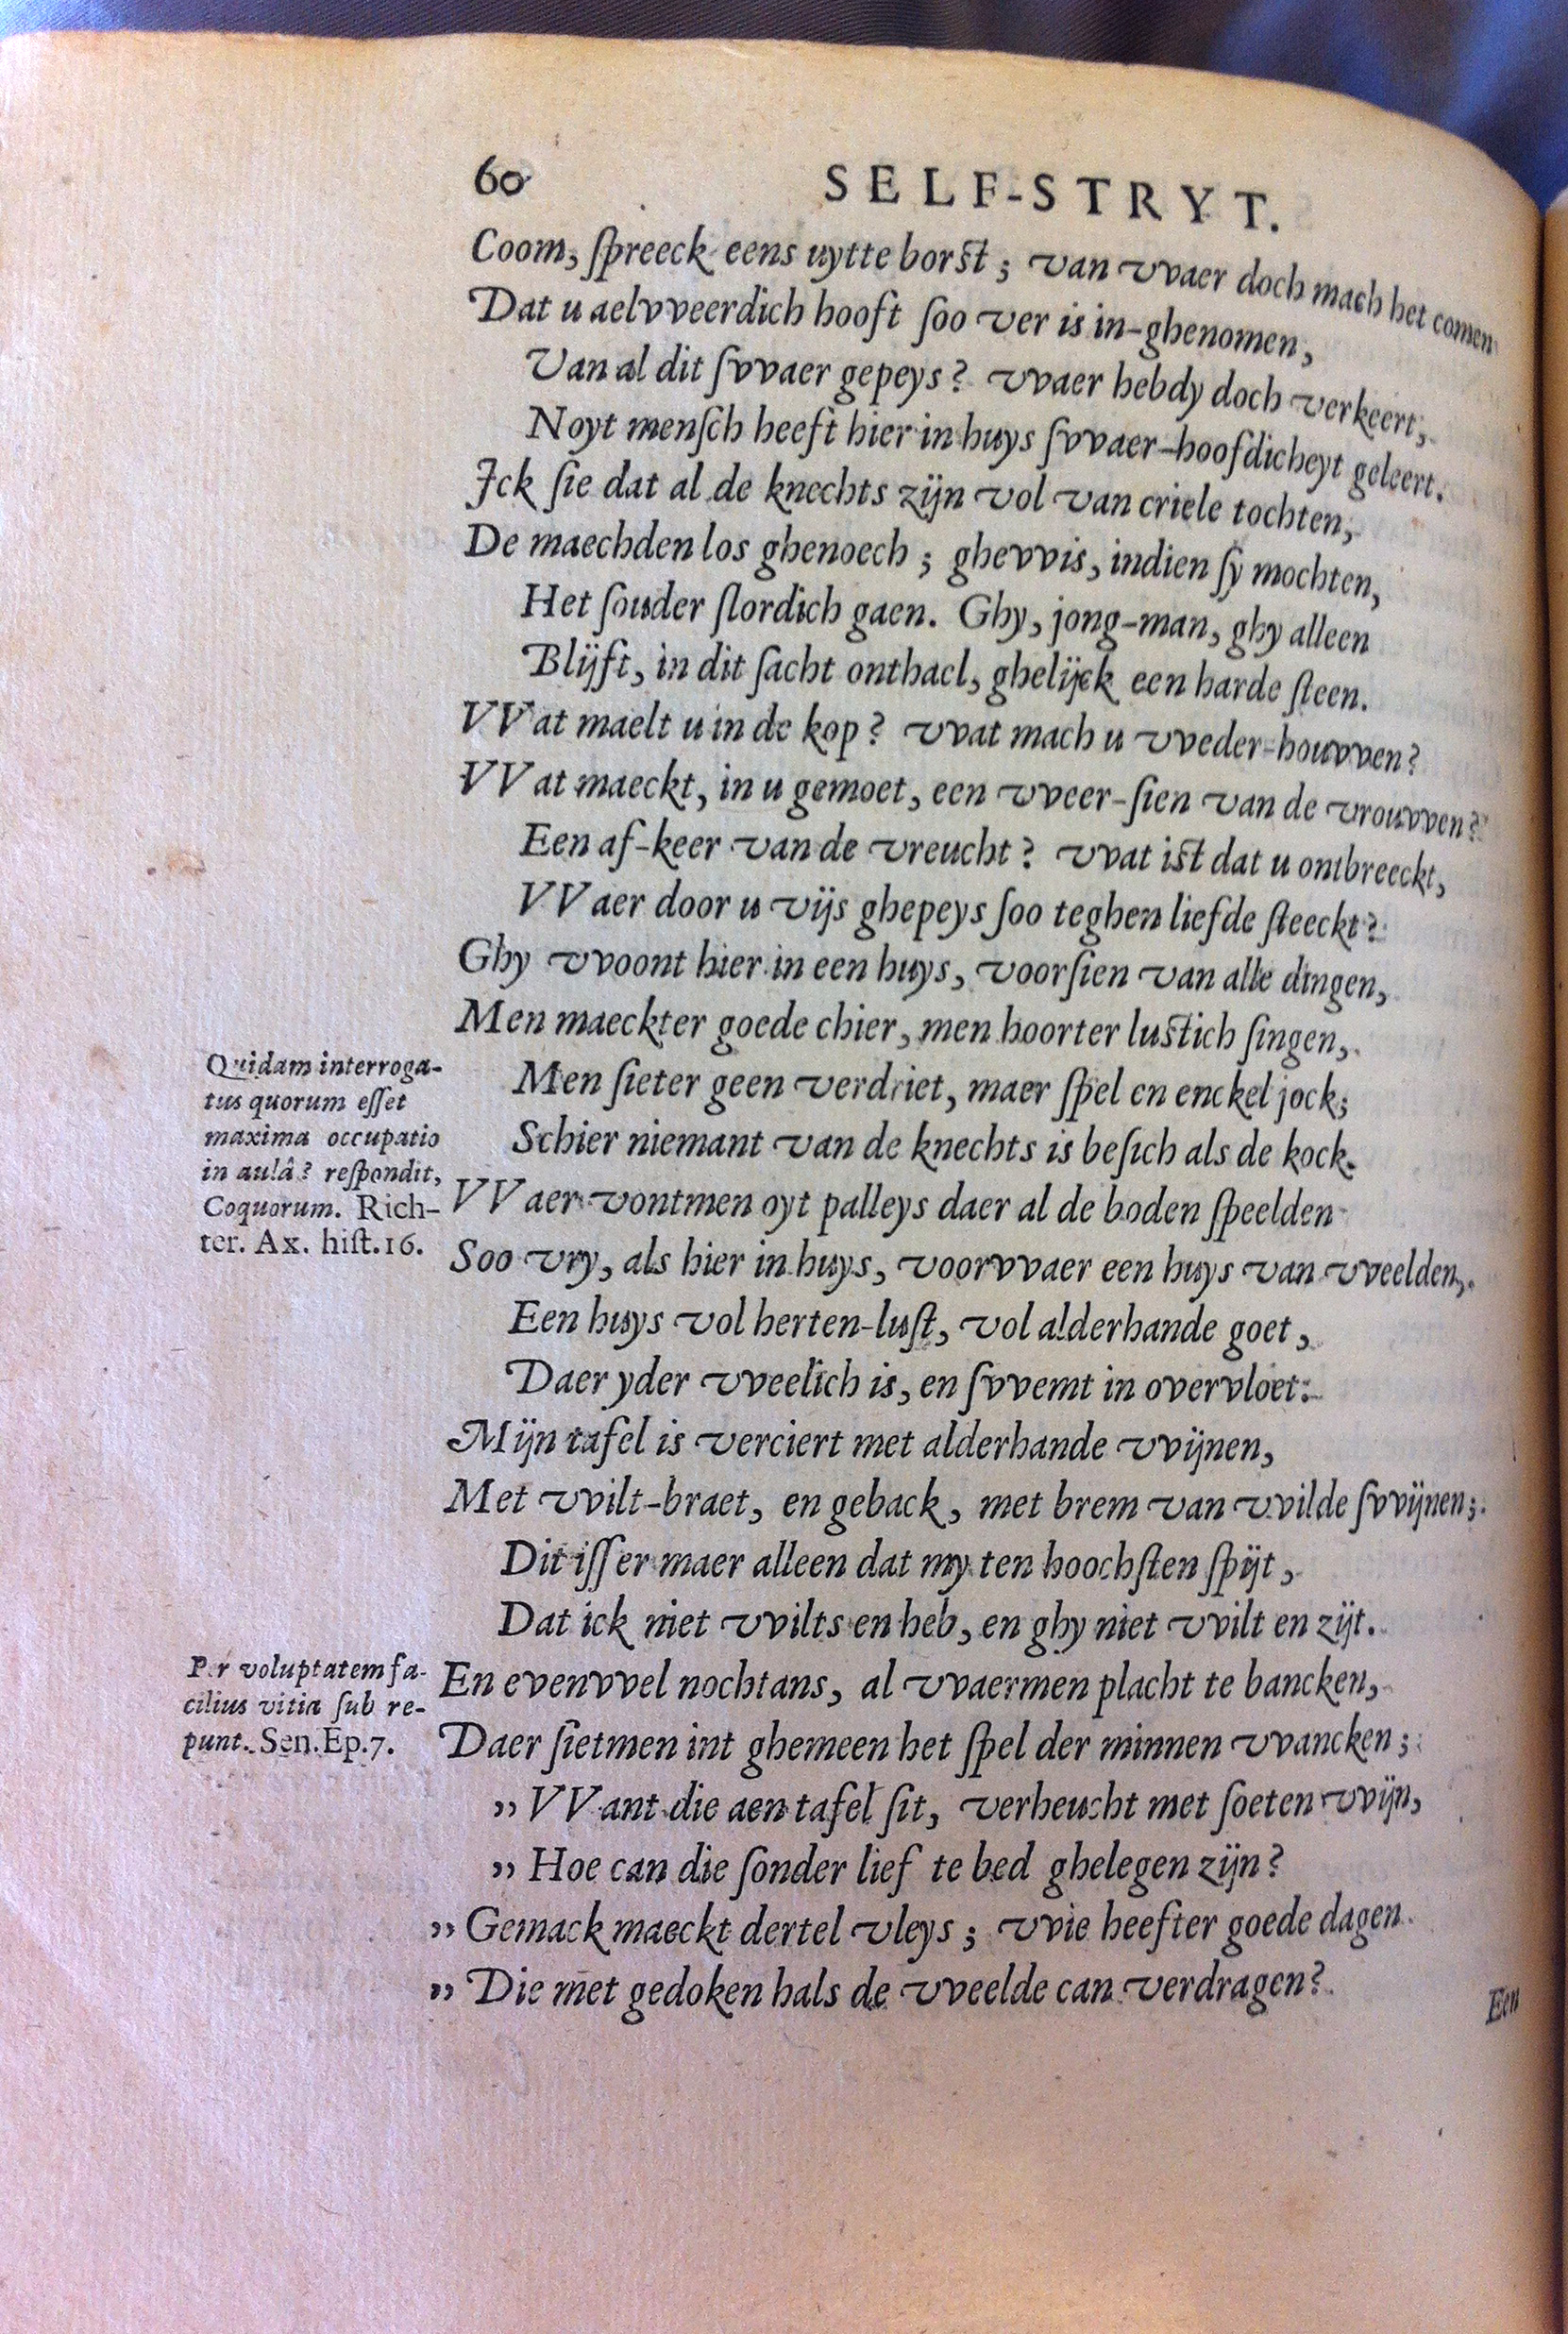 60
SELF-STRYT.
Coom, ſpreeck eens uytte borst; van vvaer doch mach het comen
Dat u aelvveerdich hooft ſoo ver is in-ghenomen,
Van al dit ſvvaer gepeys? vvaer hebdy doch verkeert,
Noyt menſch heeft hier in huys ſvvaer-hoofdicheyt geleert.
Ick ſie dat al de knechts zijn vol van criele tochten,
De maechden los ghenoech; ghevvis, indien ſy mochten,
Het ſouder ſlordich gaen. Ghy, jong-man, ghy alleen
Blijft, in dit ſacht onthael, ghelijck een harde ſteen.
VVat maelt u in de kop? vvat mach u vveder-houvven?
VVat maeckt, in u gemoet, een vveer-ſien van de vrouvven?
Een af-keer van de vreucht? vvat ist dat u ontbreeckt,
VVaer door u vijs ghepeys ſoo teghen liefde ſteeckt?
Ghy vvoont hier in een huys, voorſien van alle dingen,
Men maeckter goede chier, men hoorter lustich ſingen,
Men ſieter geen verdriet, maer ſpel en enckel jock;
Schier niemant van de knechts is beſich als de kock.
Quidam interroga-
tus quorum eſſet
maxima occupatio
in aulâ? reſpondit,
Coquorum. Rich-
ter. Ax. hiſt. 16.
VVaer vontmen oyt palleys daer al de boden ſpeelden
Soo vry, als hier in huys, voorvvaer een huys van vveelden,
Een huys vol herten-luſt, vol alderhande goet,
Daer yder vveelich is, en ſvvemt in overvloet:
Mijn tafel is verciert met alderhande vvijnen,
Met vvilt-braet, en geback, met brem van vvilde ſvvijnen;
Dit iſſer maer alleen dat my ten hoochſten ſpijt,
Dat ick niet vvilts en heb, en ghy niet vvilt en zijt.
Per voluptatem fa-
cilius vitia ſub re-
punt. Sen. Ep. 7.
En evenvvel nochtans, al vvaermen placht te bancken,
Daer ſietmen int ghemeen het ſpel der minnen vvancken;
„ VVant die aen tafel ſit, verheucht met ſoeten vvijn,
„ Hoe can die ſonder lief te bed ghelegen zijn?
„ Gemack maeckt dertel vleys; vvie heefter goede dagen
„ Die met gedoken hals de vveelde can verdragen?
Een